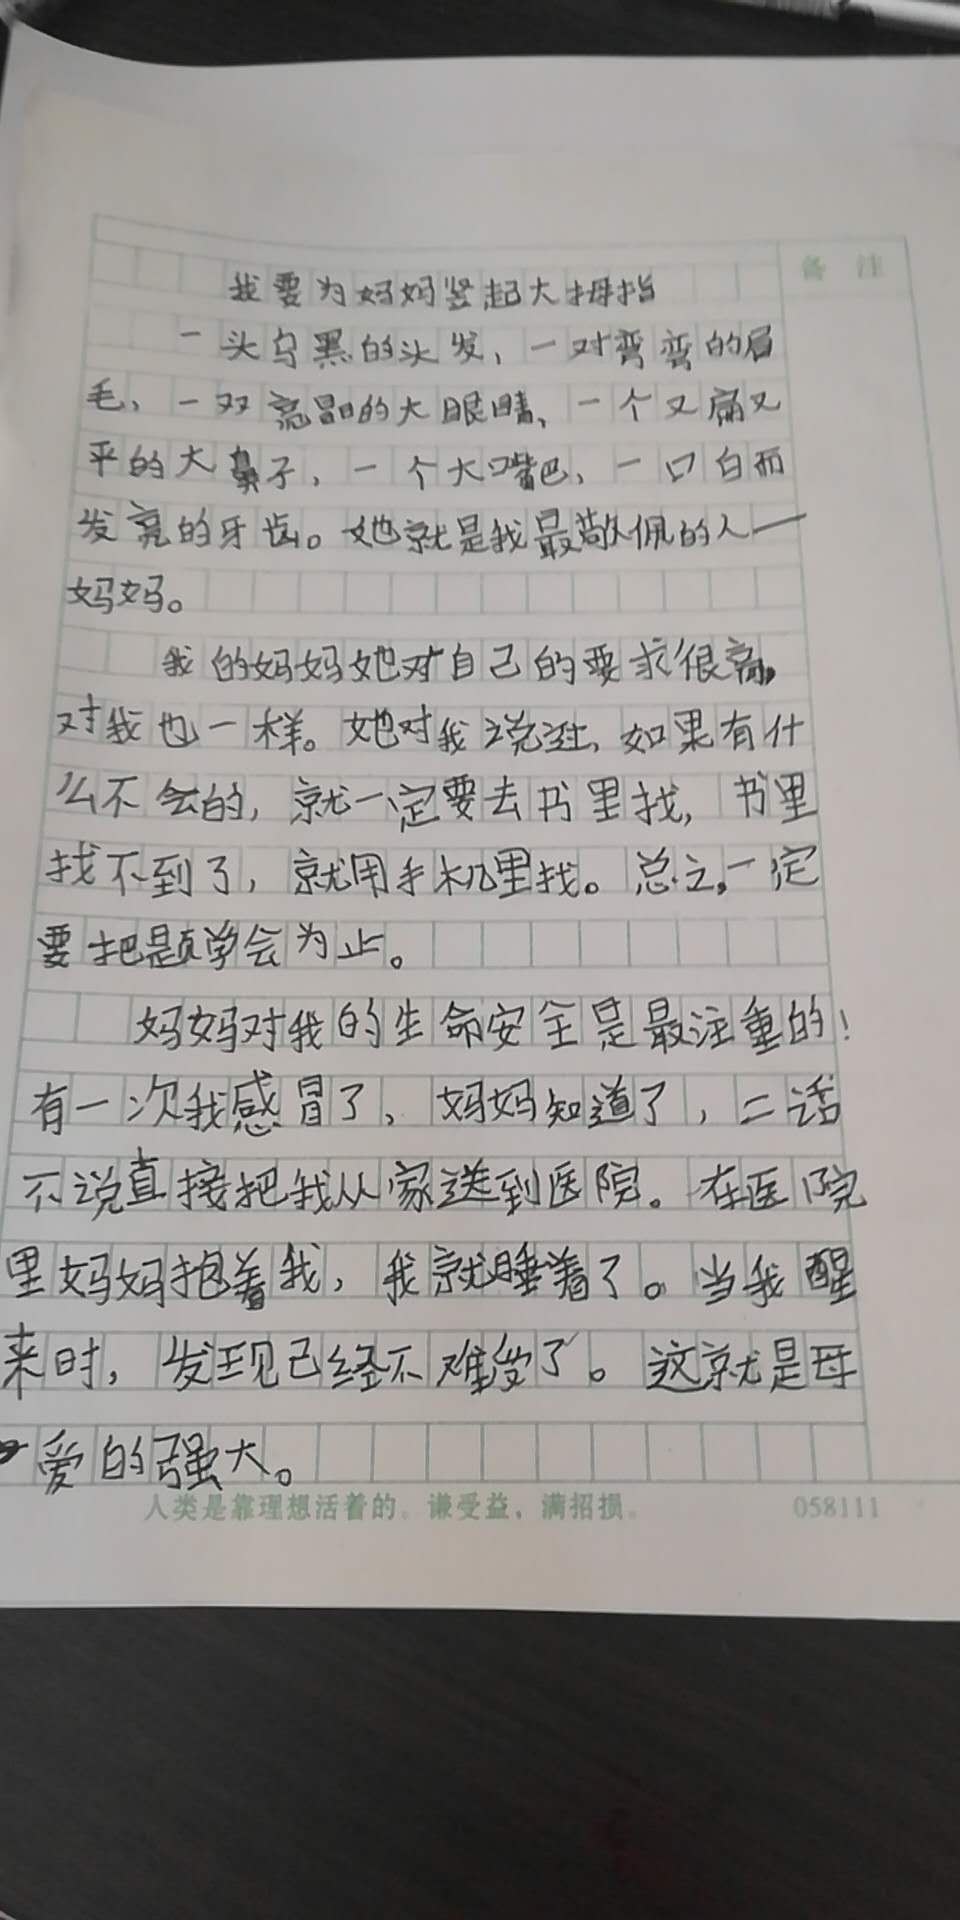 备 注
我要为妈妈竖起大拇指
一头乌黑的头发，一对弯弯的眉
毛，一双亮晶的大眼睛，一个又扁又
平的大鼻子，一个大嘴巴，一口白而
发亮的牙齿。她就是我最敬佩的人——
妈妈。
我的妈妈她对自己的要求很高，
对我也一样。她对我说过，如果有什
么不会的，就一定要去书里找，书里
找不到了，就用手机里找。总之，一定
要把题学会为止。
妈妈对我的生命安全是最注重的！
有一次我感冒了，妈妈知道了，二话
不说直接把我从家送到医院。在医院
里妈妈抱着我，我就睡着了。当我醒
来时，发现已经不难受了。这就是母
爱的强大。
人类是靠理想活着的。谦受益，满招损。 058111